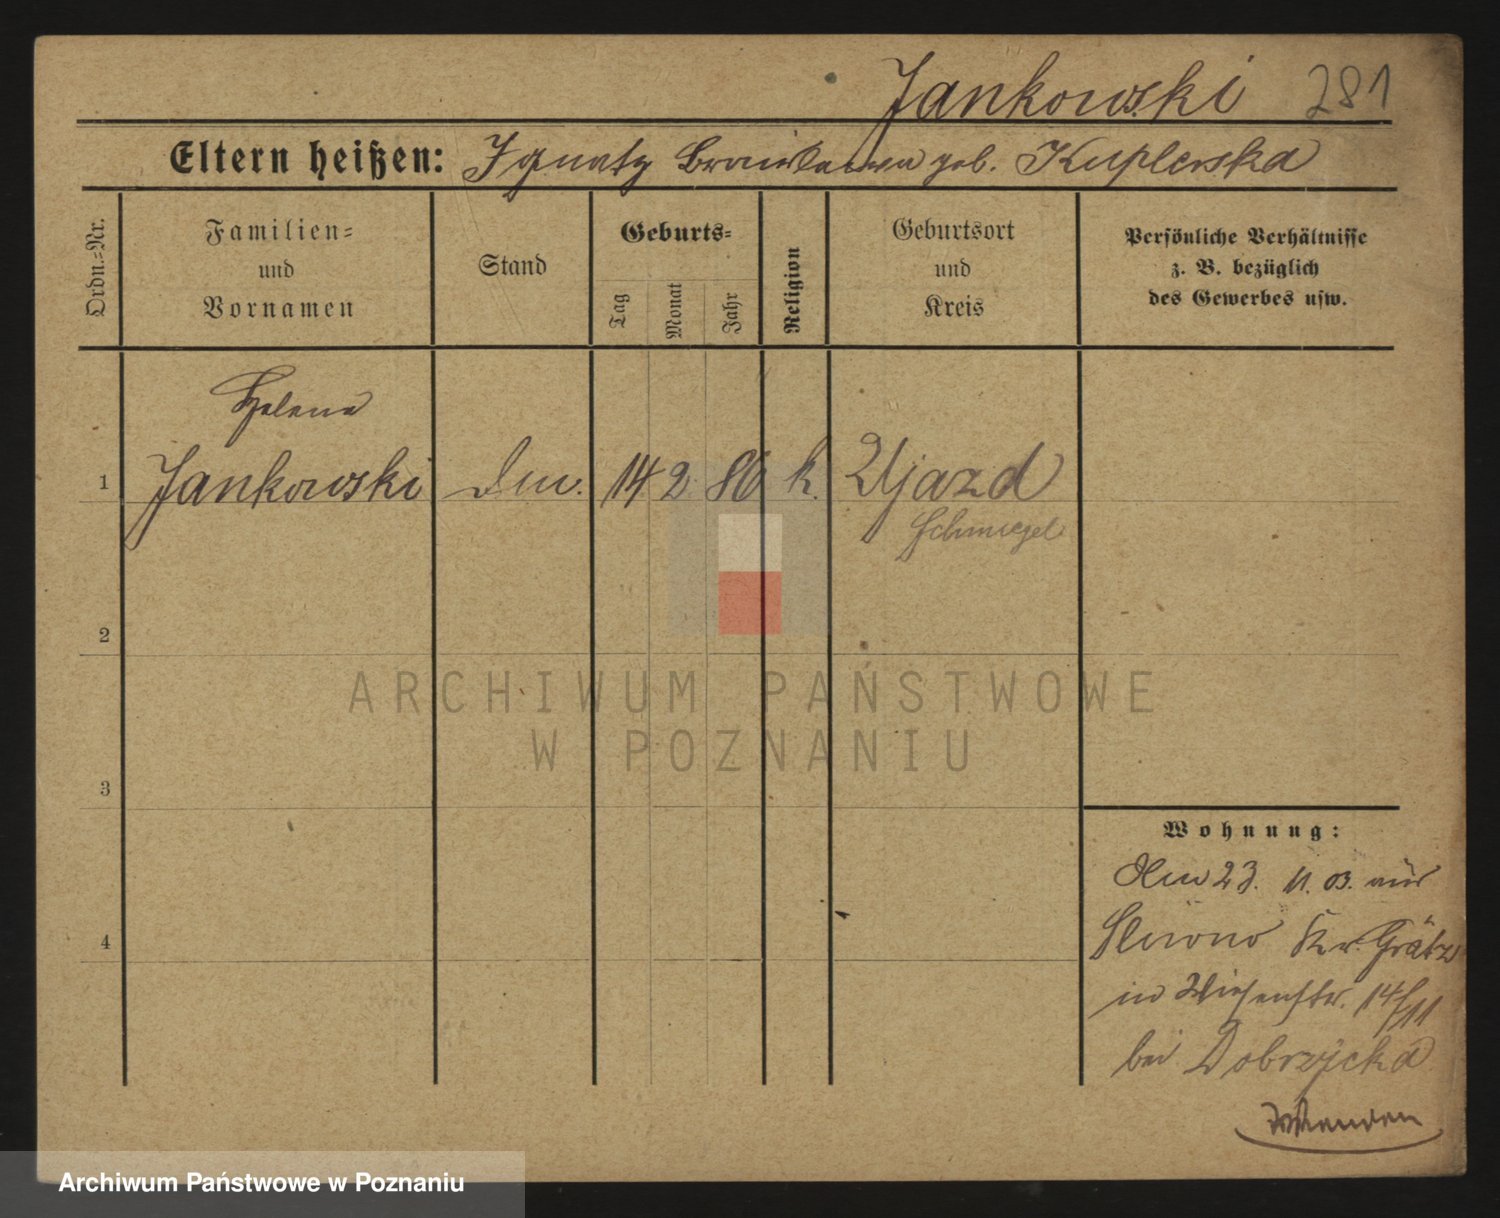 Jankowski 281
Eltern heißen: Ignatz geb. Kuplerska
Ordn.-Nr.
Familien-
und
Vornamen
Stand
Geburts-
Tag
Monat
Jahr
Religion
Geburtsort
und
Kreis
Persönliche Verhältnisse
z. B. bezüglich
des Gewerbes usw.
Helena
1 Jankowski 14 2 86 k. Ujazd
Schmiegel
2
3
4
ARCHIWUM PAŃSTWOWE
W POZNANIU
Wohnung:
23. 11. 03. aus
Kr. Grätz
in Wiesenstr. 14/11
bei Dobrzycka
Archiwum Państwowe w Poznaniu